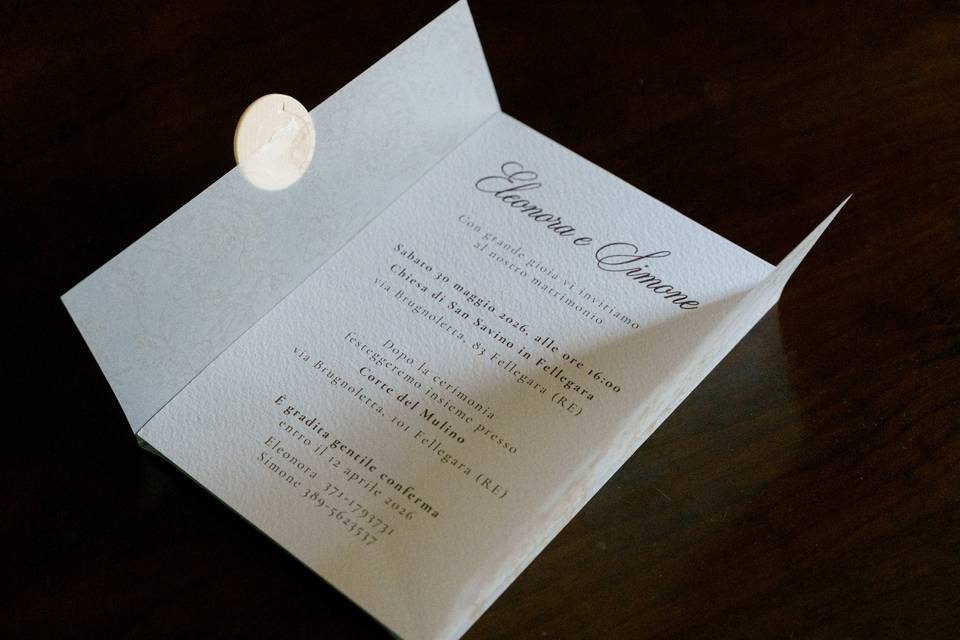 Eleonora e Simone
Con grande gioia vi invitiamo
al nostro matrimonio
Sabato 30 maggio 2026, alle ore 16:00
Chiesa di San Savino in Fellegara
via Brugnoletta, 83 Fellegara (RE)
Dopo la cerimonia
festeggeremo insieme presso
Corte del Mulino
via Brugnoletta, 101 Fellegara (RE)
È gradita gentile conferma
entro il 12 aprile 2026
Eleonora 371-1793731
Simone 389-5623537